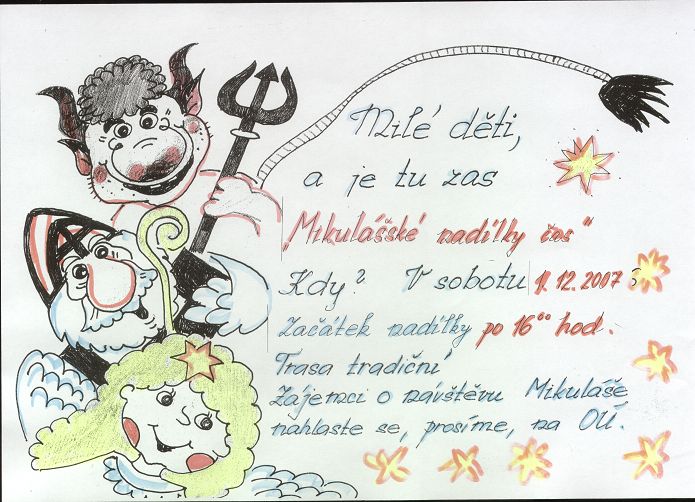 Milé děti,
a je tu zas
„Mikulášské nadílky čas"
Kdy? V sobotu 1.12.2007
Začátek nadílky po 16⁰⁰ hod.
Trasa tradiční
Zájemci o návštěvu Mikuláše,
nahlaste se, prosíme, na OÚ.